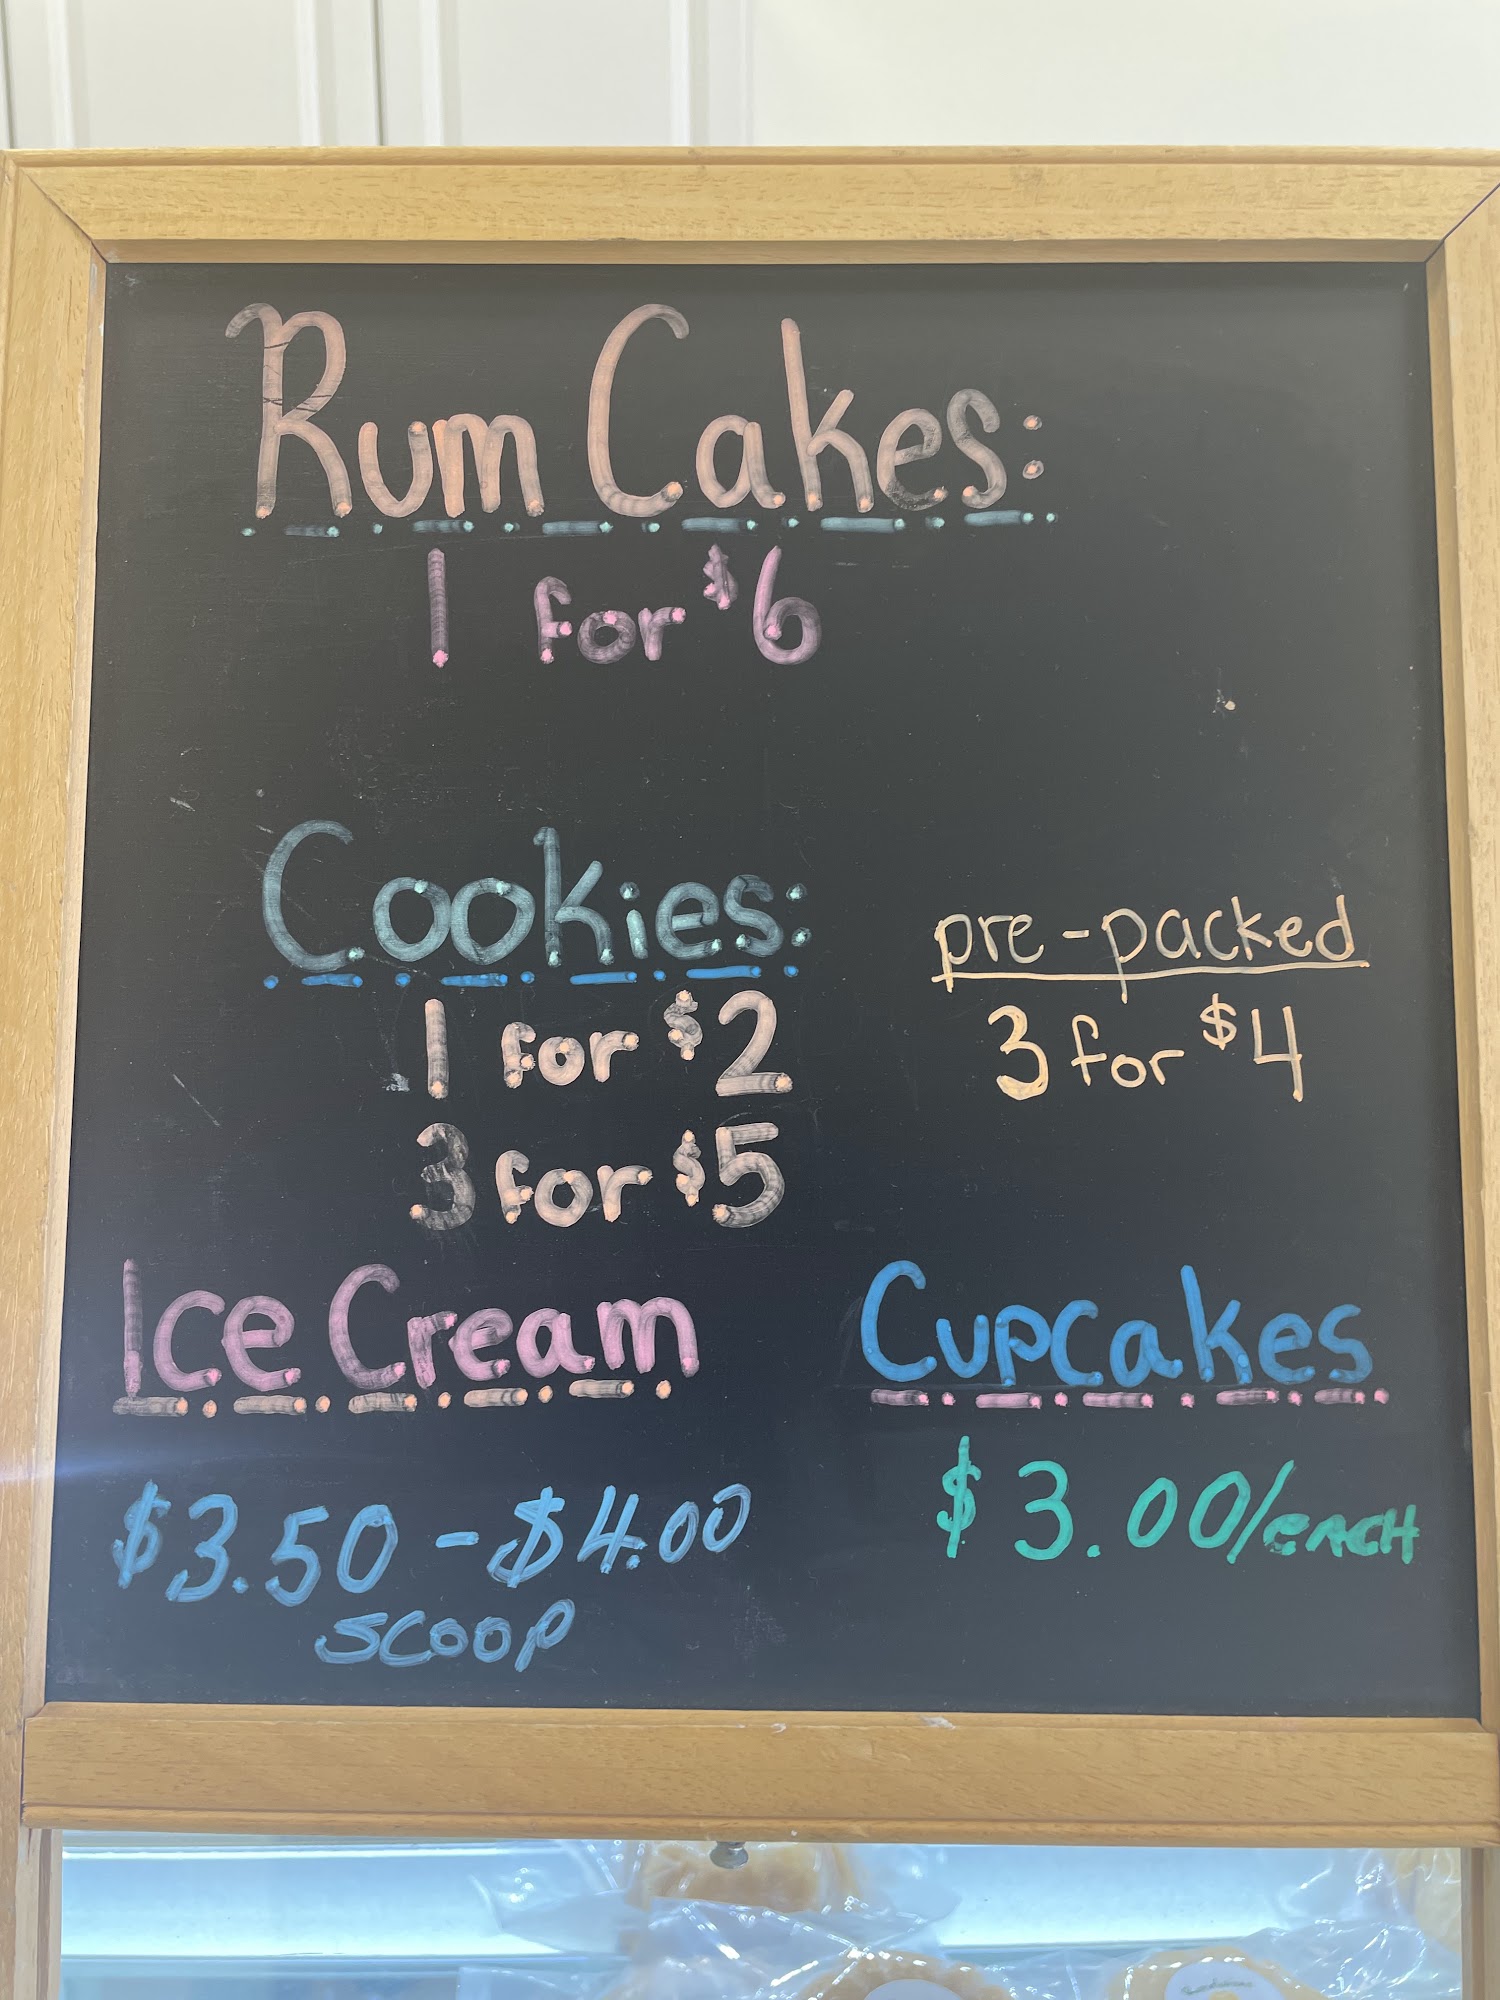 Rum Cakes:
1 for $6
Cookies:
1 for $2
3 for $5
pre-packed
3 for $4
Ice Cream
$3.50 - $4.00
SCOOP
Cupcakes
$3.00/EACH